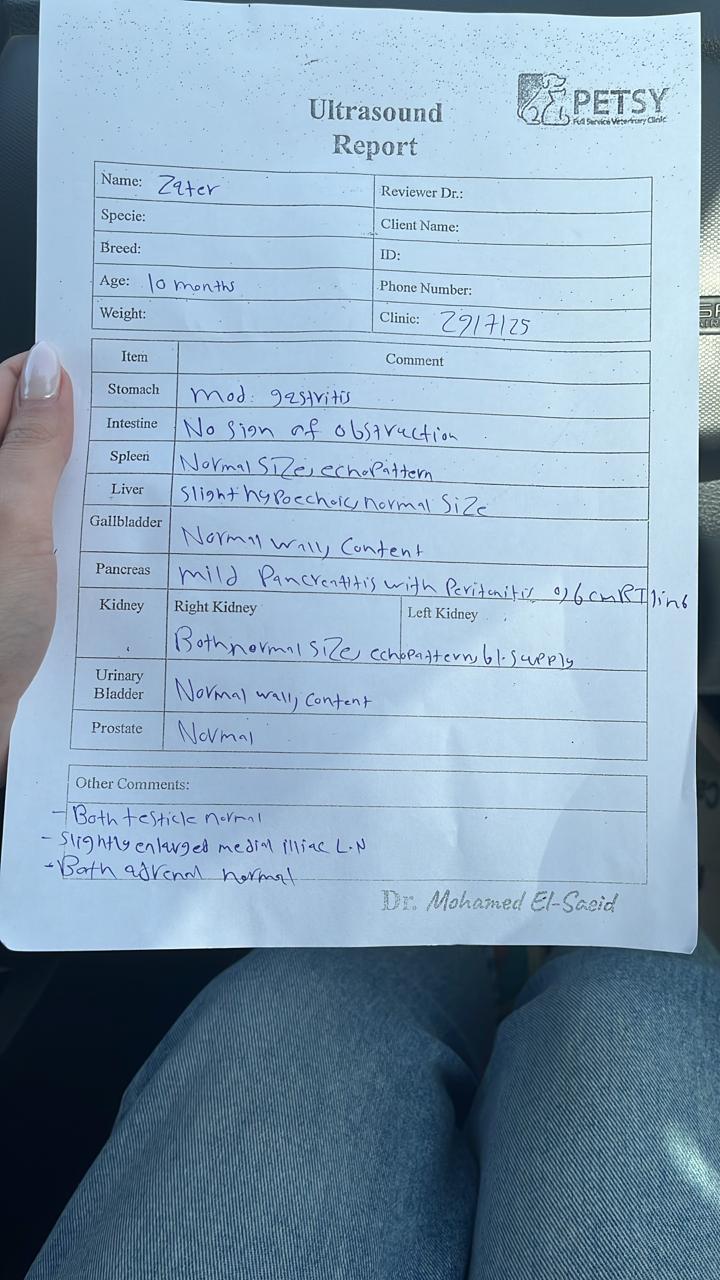 PETSY
Full Service Veterinary Clinic
Ultrasound
Report
Name: Zater
Reviewer Dr.:
Specie:
Client Name:
Breed:
ID:
Age: 10 months
Phone Number:
Weight:
Clinic: 29/7/25
Item Comment
Stomach mod. gastritis
Intestine No sign of obstruction
Spleen Normal size, echopattern
Liver slight hypoechoic, normal size
Gallbladder Normal wall, content
Pancreas mild Pancreatitis with Peritonitis 0,6 cm RT limb
Kidney Right Kidney Left Kidney
Both normal size, echopattern, bl. supply
Urinary Bladder Normal wall, content
Prostate Normal
Other Comments:
- Both testicle normal
- slightly enlarged medial illiac L.N
- Both adrenal normal
Dr. Mohamed El-Saeid